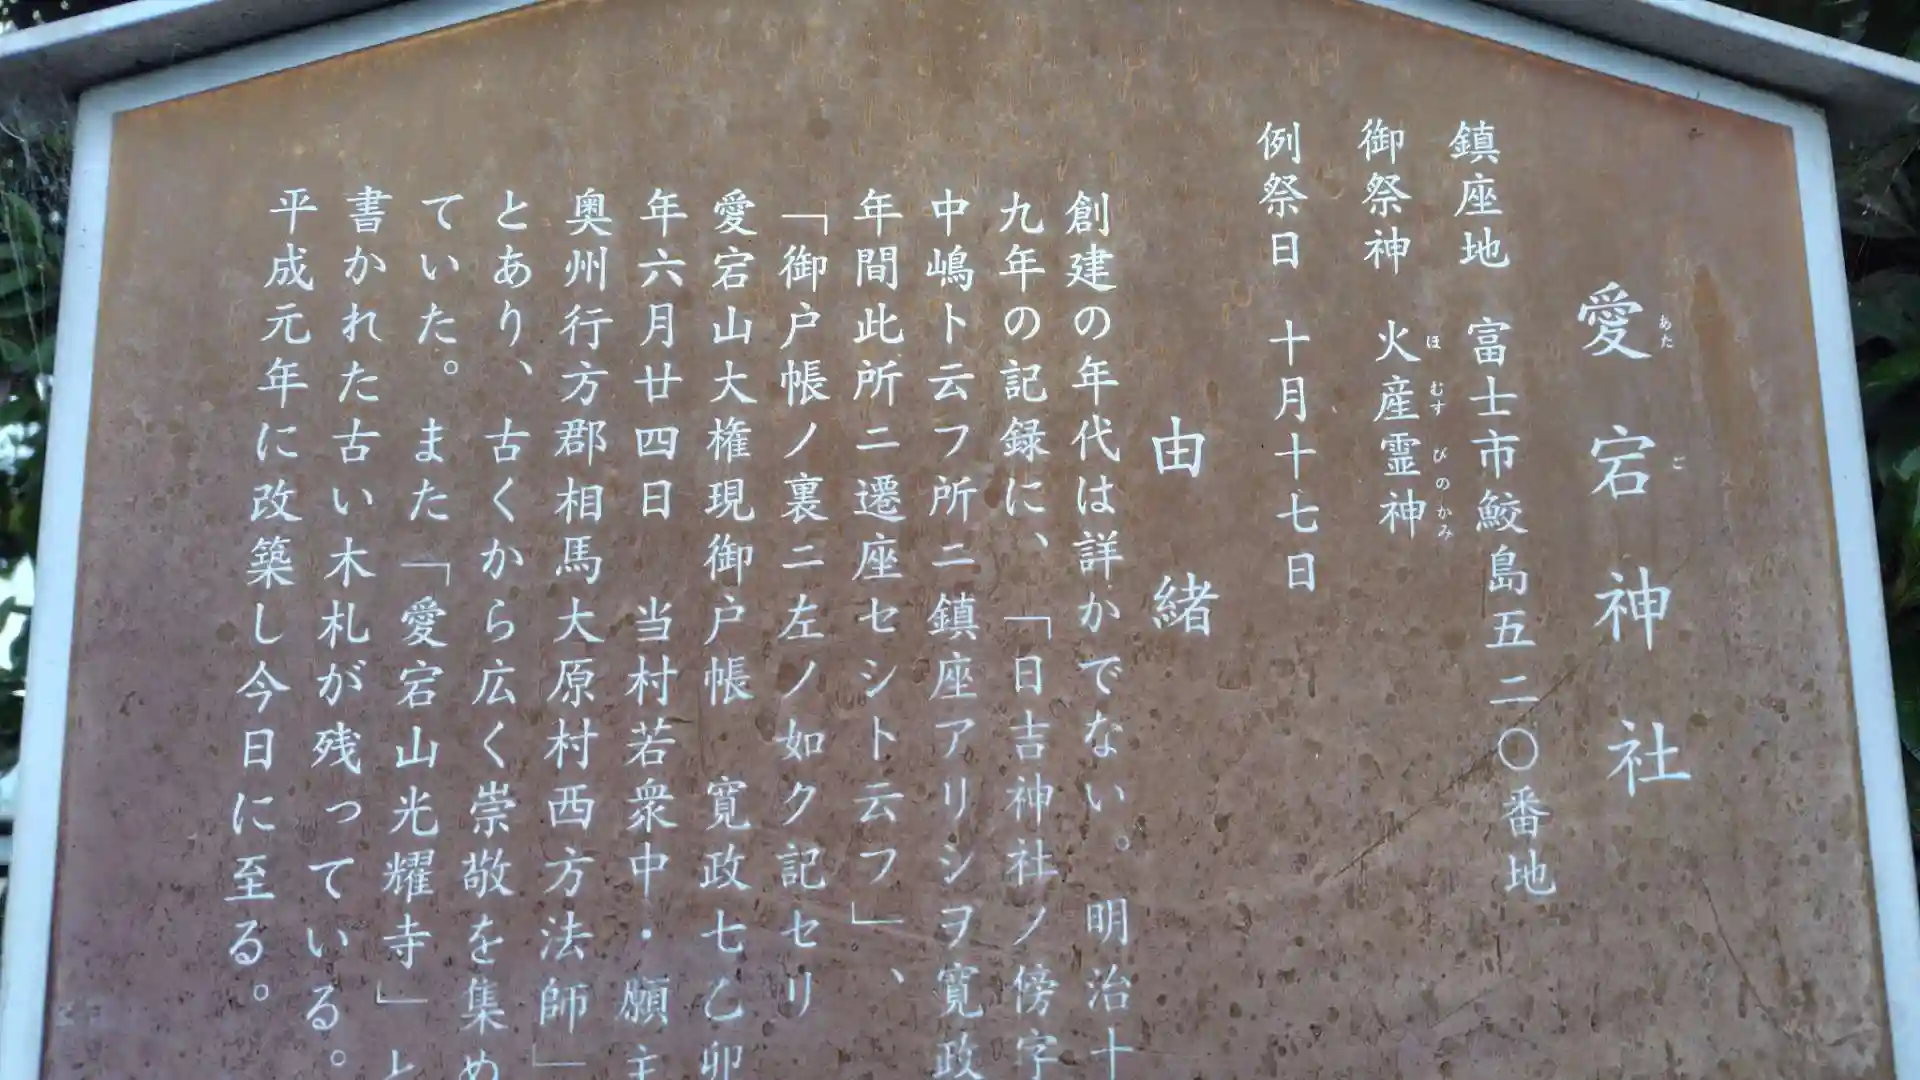 愛宕神社
あたご
鎮座地 富士市鮫島五二〇番地
御祭神 火産霊神
ほむすびのかみ
例祭日 十月十七日
由緒
創建の年代は詳かでない。明治十
九年の記録に、「日吉神社ノ傍字
中嶋ト云フ所ニ鎮座アリシヲ寛政
年間此所ニ遷座セシト云フ」、
「御戸帳ノ裏ニ左ノ如ク記セリ
愛宕山大権現御戸帳 寛政七乙卯
年六月廿四日 当村若衆中・願主
奥州行方郡相馬大原村西方法師」
とあり、古くから広く崇敬を集め
ていた。また「愛宕山光耀寺」と
書かれた古い木札が残っている。
平成元年に改築し今日に至る。